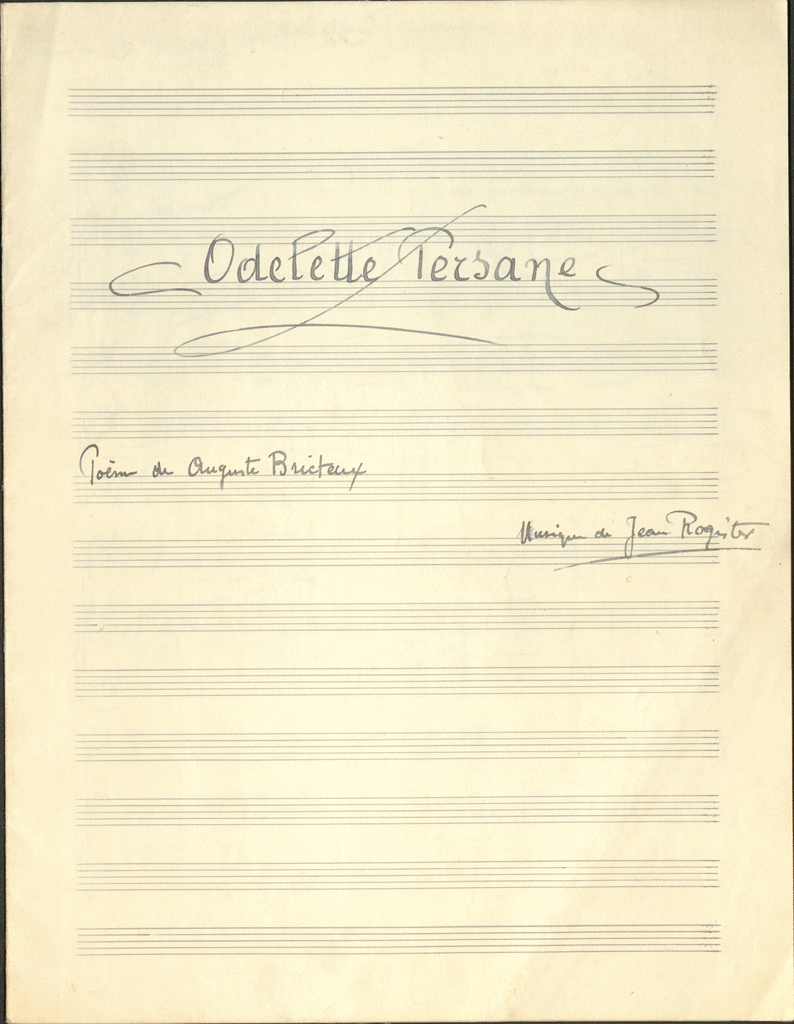 Odelette Persane
Poème de Auguste Bricteux
Musique de Jean Rogister